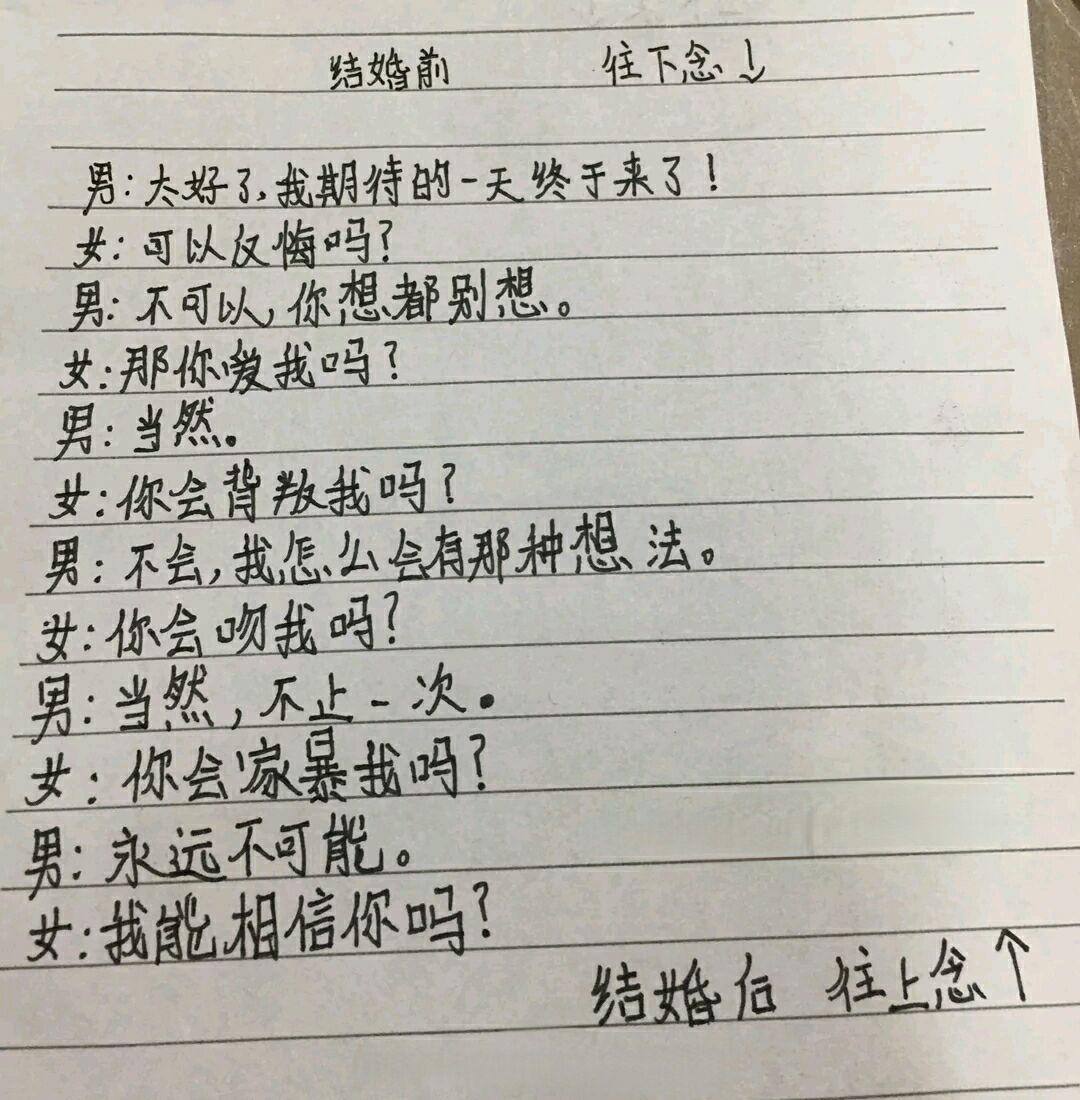 结婚前 往下念↓
男:太好了,我期待的一天终于来了!
女:可以反悔吗?
男:不可以,你想都别想。
女:那你爱我吗?
男:当然。
女:你会背叛我吗?
男:不会,我怎么会有那种想法。
女:你会吻我吗?
男:当然,不止一次。
女:你会家暴我吗?
男:永远不可能。
女:我能相信你吗?
结婚后 往上念↑